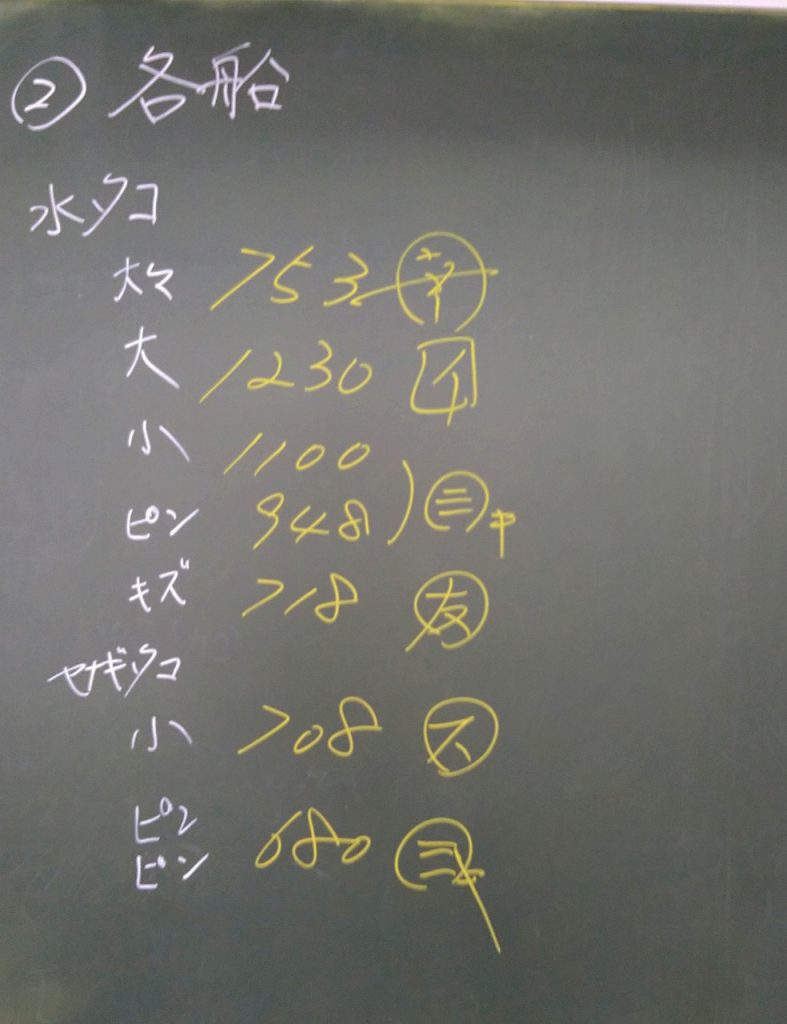 ② 各船
水タコ
大々 753
大 1230
小 1100
ピン 948 ㊂
キズ 718 友
ヤナギタコ
小 708
ピン
ピン 680 ㊂